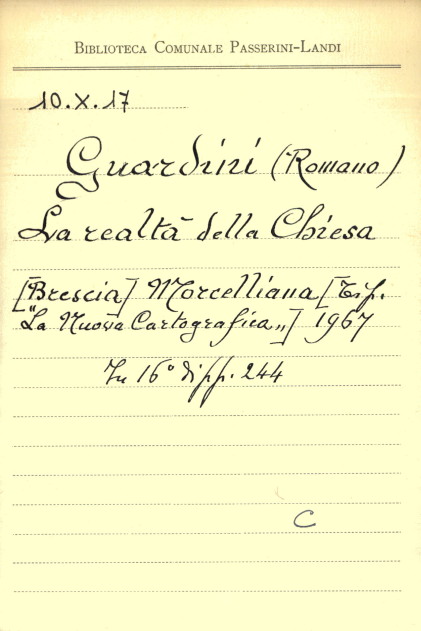 BIBLIOTECA COMUNALE PASSERINI-LANDI
10.X.17
Guardini (Romano)
La realtà della Chiesa
[Brescia] Morcelliana [Tip.
"La Nuova Cartografica„] 1967
In 16° di pp. 244
C